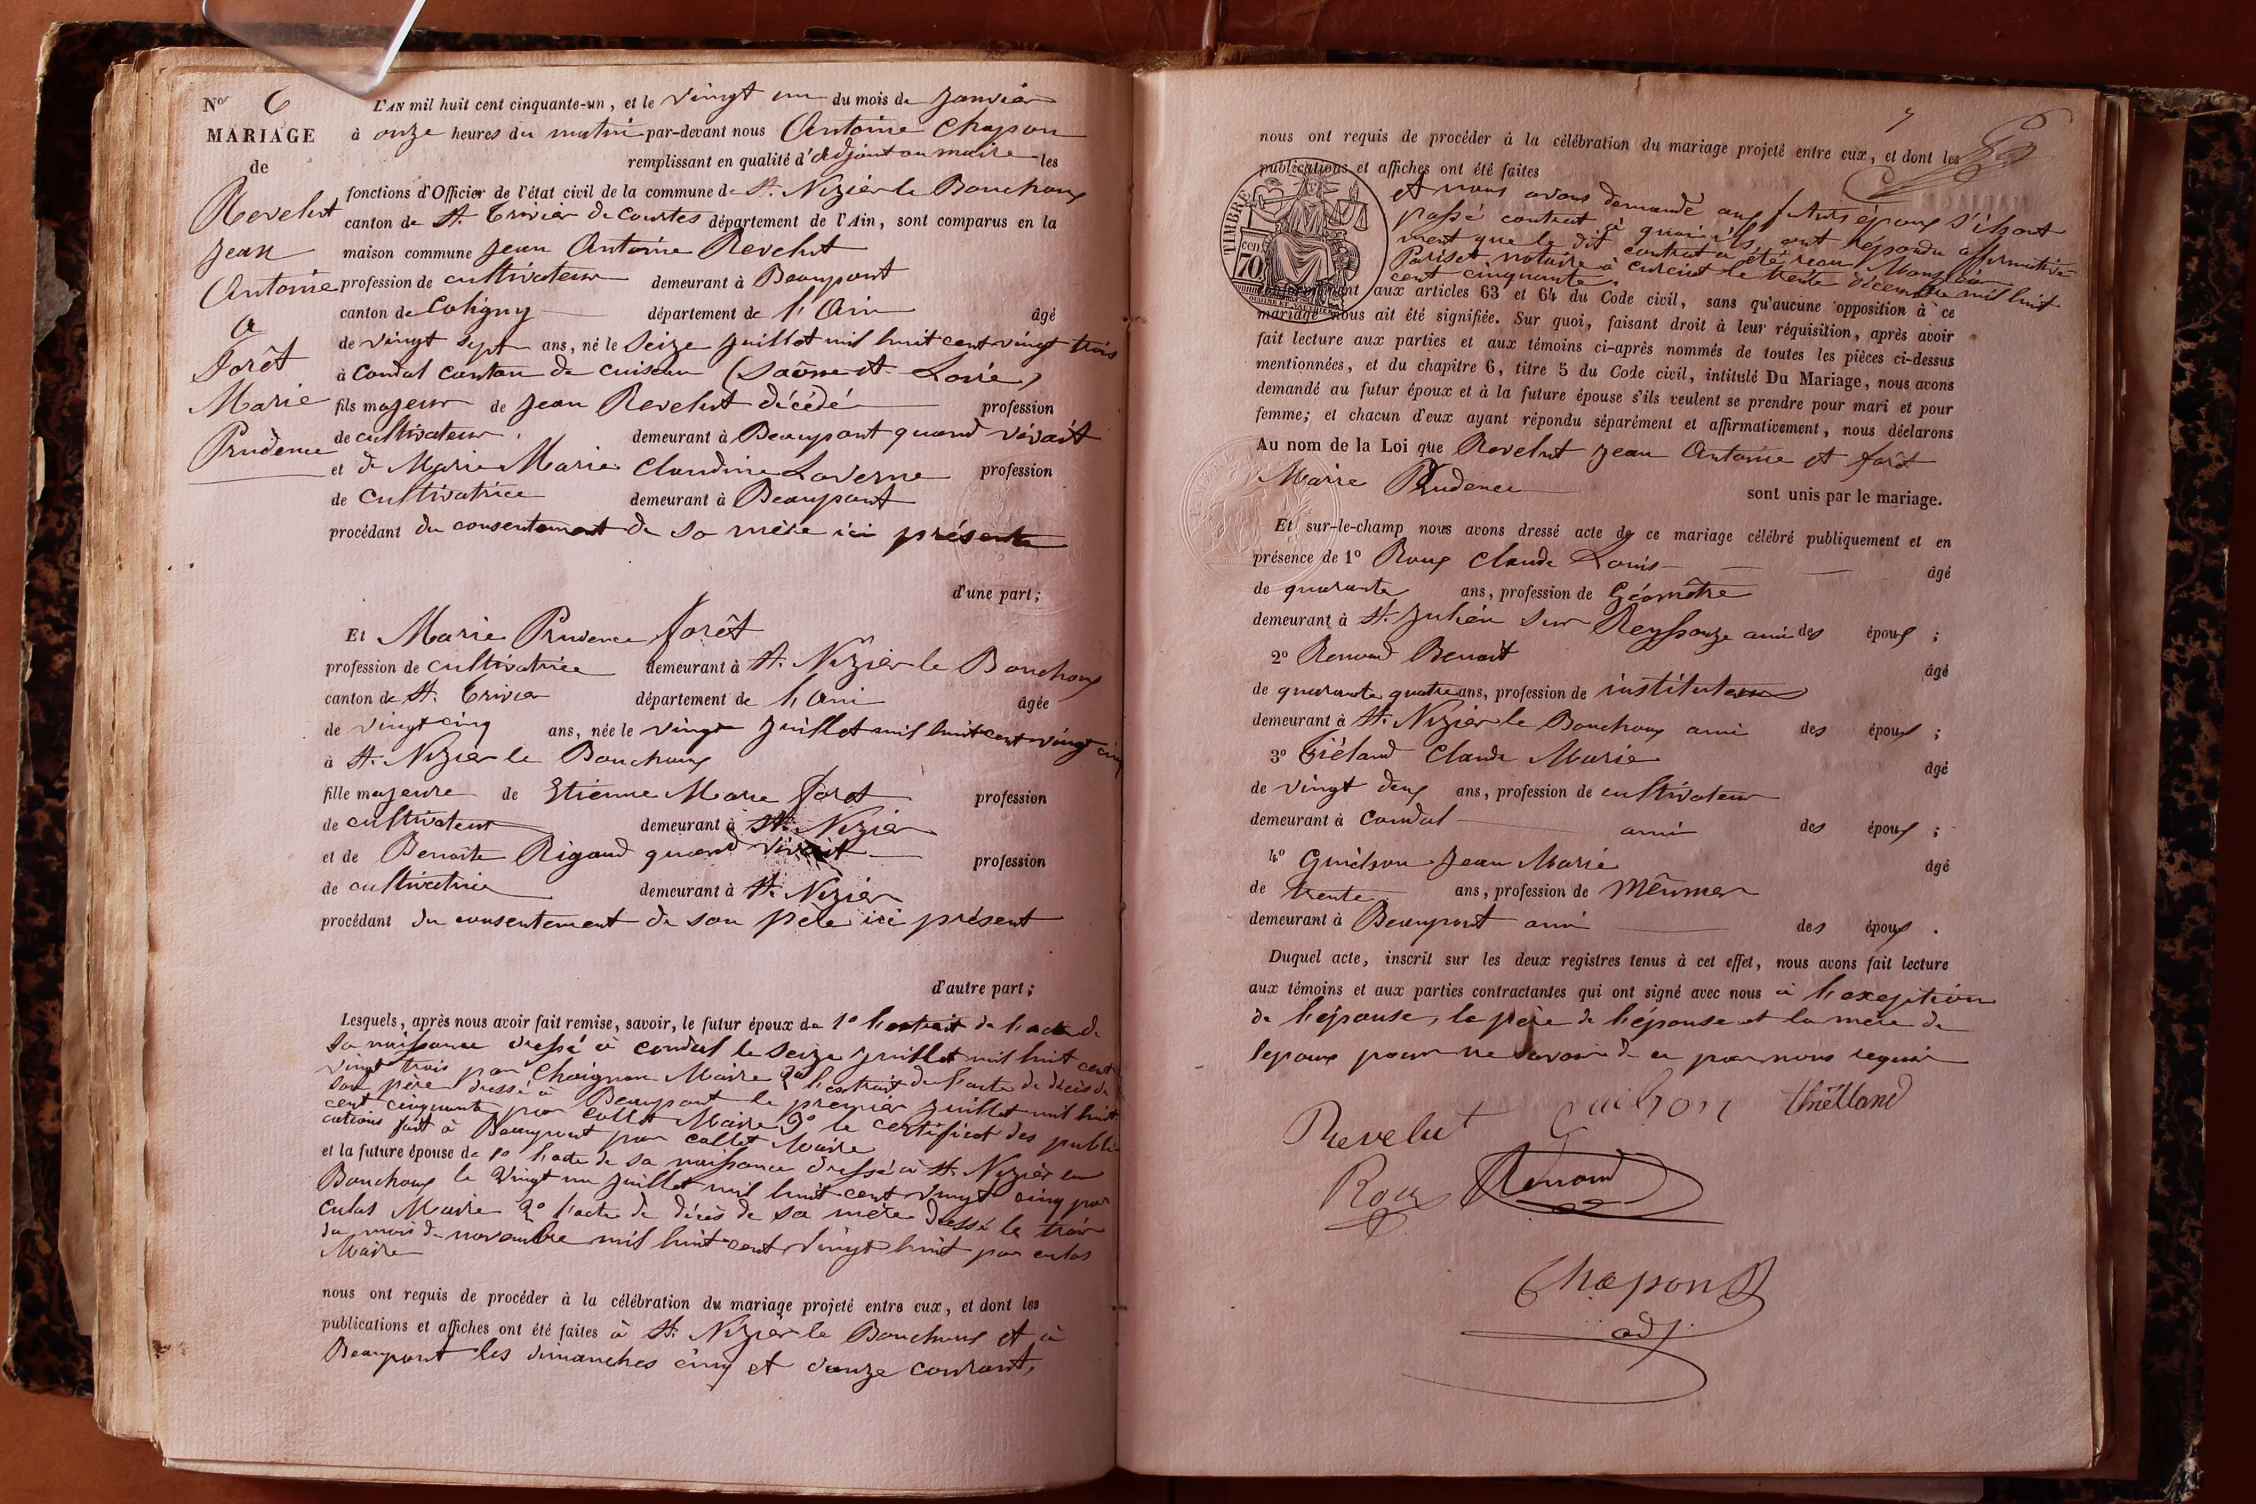 N° 6
MARIAGE
de
Revelut
Jean
Antoine
à
Forêt
Marie
Prudence
L'AN mil huit cent cinquante-un, et le vingt un du mois de Janvier
à onze heures du matin par-devant nous Antoine Chapon
remplissant en qualité d'adjoint au maire les
fonctions d'Officier de l'état civil de la commune de St. Nizier le Bouchoux
canton de St. Trivier de Courtes département de l'Ain, sont comparus en la
maison commune Jean Antoine Revelut
profession de cultivateur demeurant à Beaupont
canton de Coligny département de l'Ain âgé
de vingt sept ans, né le Seize Juillet mil huit cent vingt trois
à Condal canton de Cuiseau (Saône et Loire)
fils majeur de Jean Revelut décédé profession
de cultivateur, demeurant à Beaupont quand vivait
et de Marie Marie Claudine Laverne profession
de cultivatrice demeurant à Beaupont
procédant du consentement de sa mère ici présente
d'une part;
Et Marie Prudence forêt
profession de cultivatrice demeurant à St. Nizier le Bouchoux
canton de St. Trivier département de l'Ain âgée
de vingt cinq ans, née le vingt Juillet mil huit cent vingt cinq
à St. Nizier le Bouchoux
fille majeure de Etienne Marie forêt profession
de cultivateur demeurant à St. Nizier
et de Benoite Rigaud quand vivait profession
de cultivatrice demeurant à St. Nizier
procédant du consentement de son père ici présent
d'autre part;
Lesquels, après nous avoir fait remise, savoir, le futur époux de 1° l'extrait de l'acte de
sa naissance dressé à Condal le Seize Juillet mil huit cent
vingt trois par Chaignon Maire 2° l'extrait de l'acte de décès de
son père dressé à Beaupont le premier Juillet mil huit
cent cinquante par Collet Maire 3° le certificat des publi
cations fait à Beaupont par Collet Maire
et la future épouse de 1° l'acte de sa naissance dressé à St. Nizier le
Bouchoux le Vingt un Juillet mil huit cent vingt cinq par
Culas Maire 2° l'acte de décès de sa mère dressé le trois
du mois de novembre mil huit cent vingt huit par Culas
Maire
nous ont requis de procéder à la célébration du mariage projeté entre eux, et dont les
publications et affiches ont été faites à St. Nizier le Bouchoux et à
Beaupont les dimanches cinq et douze courant,
7
nous ont requis de procéder à la célébration du mariage projeté entre eux, et dont les
publications et affiches ont été faites
TIMBRE
70 cen
et nous avons demandé aux futurs époux s'ils ont
passé contrat à quoi ils ont répondu affirmative
ment que le dit contrat a été reçu
Pariset notaire à Cuiseau le trente décembre mil huit
cent cinquante.
conformément aux articles 63 et 64 du Code civil, sans qu'aucune opposition à ce
mariage nous ait été signifiée. Sur quoi, faisant droit à leur réquisition, après avoir
fait lecture aux parties et aux témoins ci-après nommés de toutes les pièces ci-dessus
mentionnées, et du chapitre 6, titre 5 du Code civil, intitulé Du Mariage, nous avons
demandé au futur époux et à la future épouse s'ils veulent se prendre pour mari et pour
femme; et chacun d'eux ayant répondu séparément et affirmativement, nous déclarons
Au nom de la Loi que Revelut Jean Antoine et forêt
Marie Prudence sont unis par le mariage.
Et sur-le-champ nous avons dressé acte de ce mariage célébré publiquement et en
présence de 1° Roux Claude Louis âgé
de quarante ans, profession de Géomètre
demeurant à St. Julien sur Reyssouze ami des époux ;
2° Renoud Benoit âgé
de quarante quatre ans, profession de instituteur
demeurant à St. Nizier le Bouchoux ami des époux ;
3° Thiéland Claude Marie âgé
de vingt deux ans, profession de cultivateur
demeurant à Condal ami des époux ;
4° Jean Marie âgé
de trente ans, profession de Meûnier
demeurant à Beaupont ami des époux .
Duquel acte, inscrit sur les deux registres tenus à cet effet, nous avons fait lecture
aux témoins et aux parties contractantes qui ont signé avec nous à l'exception
de l'épouse, le père de l'épouse et la mère de
l'epoux pour ne savoir de ce par nous requis
Revelut Thiélland
Roux Renoud
Chapon
adj.